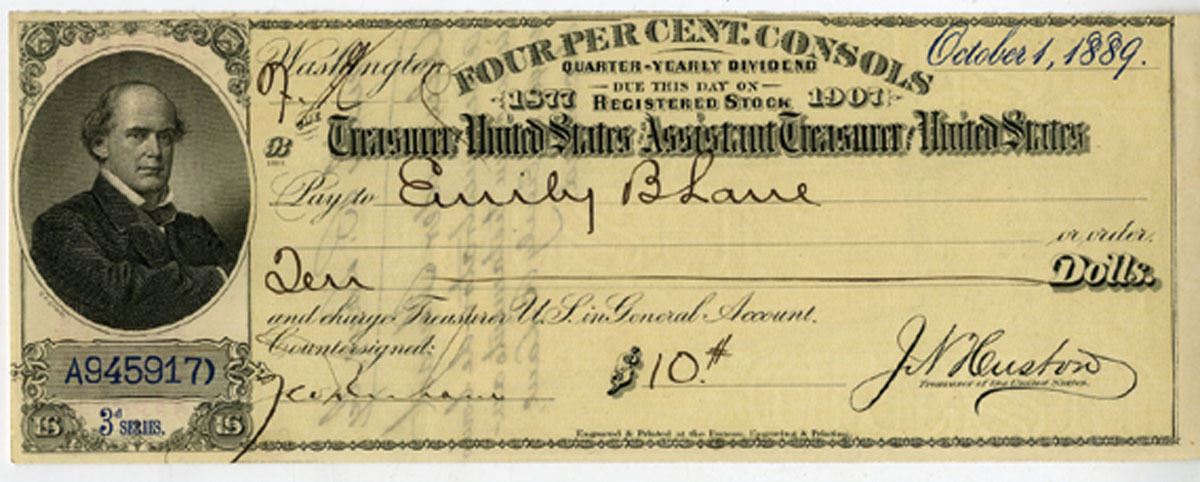 FOUR PER CENT. CONSOLS
October 1, 1889.
Washington
QUARTER-YEARLY DIVIDEND
DUE THIS DAY ON
1877 REGISTERED STOCK 1907
Treasurer United States Assistant Treasurer United States
Pay to Emily B Lane
or order,
Ten Dolls.
and charge Treasurer U.S. in General Account.
Countersigned:
$10.#
J N Huston
Treasurer of the United States.
A945917)
3d SERIES.
Engraved & Printed at the Bureau, Engraving & Printing